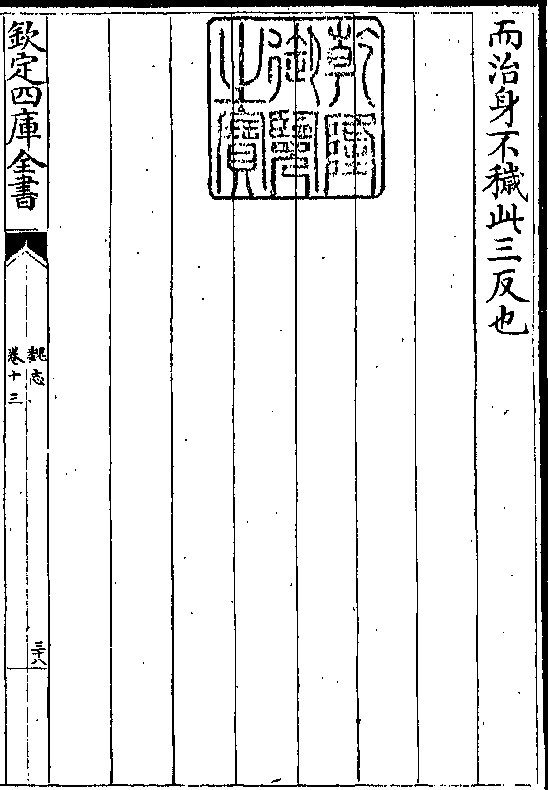 而治身不穢此三反也
乾隆御覽之寶
欽定四庫全書
魏志
卷十三
三十八